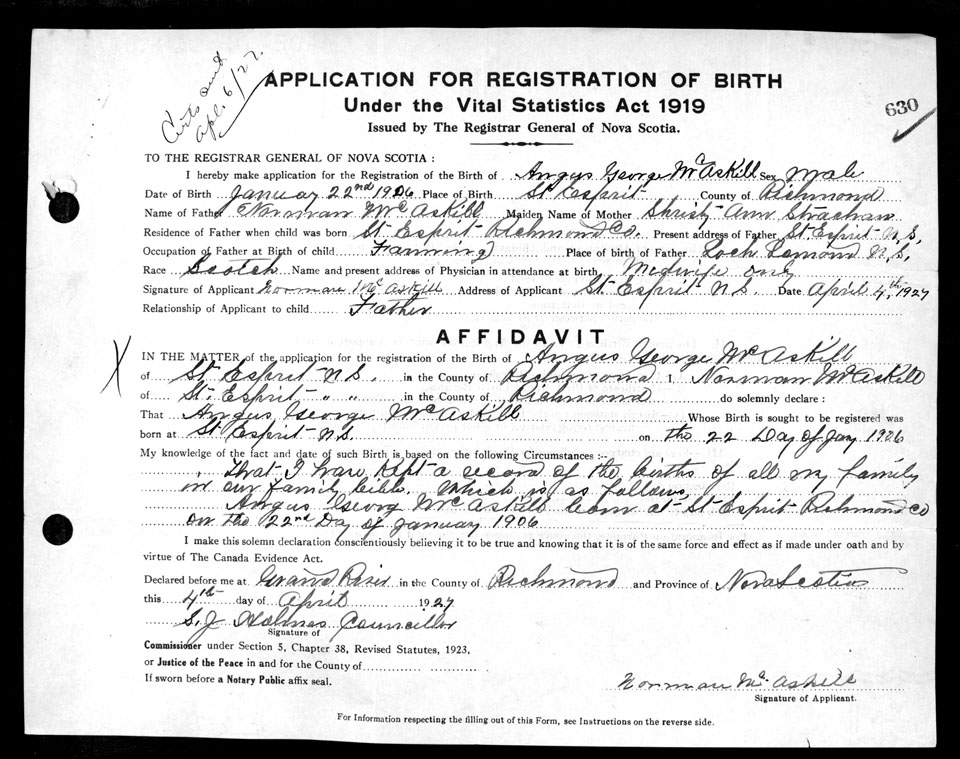 Certs sent
Apl. 6/27.
APPLICATION FOR REGISTRATION OF BIRTH
Under the Vital Statistics Act 1919
630
Issued by The Registrar General of Nova Scotia.
TO THE REGISTRAR GENERAL OF NOVA SCOTIA :
I hereby make application for the Registration of the Birth of Angus George McAskill Sex Male
Date of Birth January 22nd 1906 Place of Birth St Esprit County of Richmond
Name of Father Norman McAskill Maiden Name of Mother Christy Ann Strachan
Residence of Father when child was born St Esprit Richmond Co. Present address of Father St. Esprit N.S.
Occupation of Father at Birth of child Farming Place of birth of Father Loch Lomond N.S.
Race Scotch Name and present address of Physician in attendance at birth, Midwife only
Signature of Applicant Norman McAskill Address of Applicant St Esprit N S. Date April 4th, 1927
Relationship of Applicant to child Father
AFFIDAVIT
X
IN THE MATTER of the application for the registration of the Birth of Angus George McAskill
of St Esprit N S. in the County of Richmond I, Norman McAskill
of St. Esprit " " in the County of Richmond do solemnly declare :
That Angus George McAskill Whose Birth is sought to be registered was
born at St Esprit N.S. on the 22 Day of Jany 1906
My knowledge of the fact and date of such Birth is based on the following Circumstances :--
That I have kept a record of the births of all my family
in our family bible, which is as follows,
Angus Georg McAskill born at St Esprit Richmond Co
on the 22nd Day of January 1906
I make this solemn declaration conscientiously believing it to be true and knowing that it is of the same force and effect as if made under oath and by
virtue of The Canada Evidence Act.
Declared before me at Grand River in the County of Richmond and Province of Nova Scotia
this 4th day of April 1927
S. J Holmes Councillor
Signature of
Commissioner under Section 5, Chapter 38, Revised Statutes, 1923.
or Justice of the Peace in and for the County of
If sworn before a Notary Public affix seal.
Norman McAskill
Signature of Applicant.
For Information respecting the filling out of this Form, see Instructions on the reverse side.